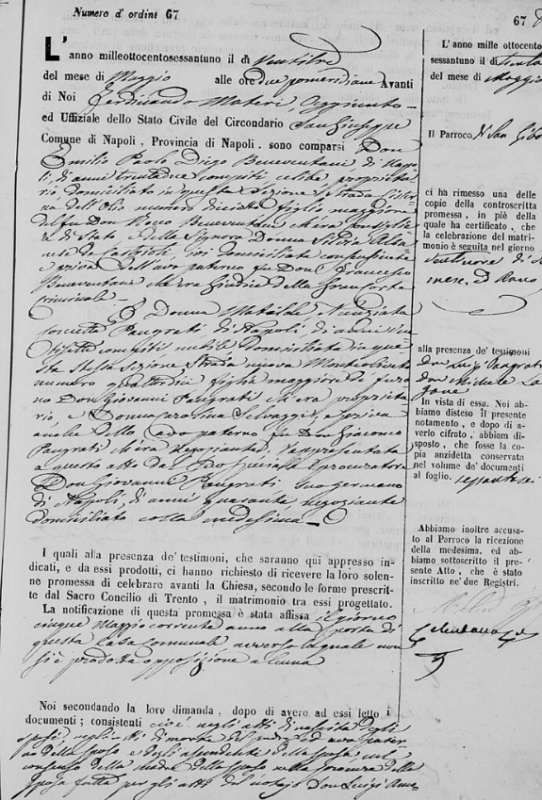 Numero d'ordine 67
L'anno milleottocentosessantuno il dì Ventitre
del mese di Maggio alle ore due pomeridiane Avanti
di Noi Ferdinando Materi Aggiunto
ed Uffiziale dello Stato Civile del Circondario San Giuseppe
Comune di Napoli, Provincia di Napoli, sono comparsi Don
Emilio Paolo Diego Beneventani di Napo
li, di anni trentadue compiti celibe proprieta
rio domiciliato in questa Sezione Strada
dell'Olio numero figlio maggiore
del fu Don Rocco Beneventani ch'era Consiglie
re di Stato e della Signora Donna Silvia
ivi domiciliata consenziente
e priva dell'avo paterno fu Don Francesco
Beneventani ch'era Giudice della Gran Corte
Criminale
E Donna Matilde Nunziata
Concetta Pangrati di Napoli, di anni Ven
tisette compiti nubile domiciliata in que
sta stessa Sezione Strada nuova Monteoliveto
numero quattordici figlia maggiore de' furo
no Don Giovanni Pangrati ch'era proprieta
rio, e Donna Selvaggi, e priva
anche dello avo paterno fu Don Giacomo
Pangrati ch'era negoziante, rappresentata
a questo atto da speciale procuratore
Don Giovanni Pangrati suo germano
di Napoli, di anni quaranta negoziante
domiciliato colla medesima
I quali alla presenza de' testimoni, che saranno qui appresso in-
dicati, e da essi prodotti, ci hanno richiesto di ricevere la loro solen-
ne promessa di celebrare avanti la Chiesa, secondo le forme prescrit-
te dal Sacro Concilio di Trento, il matrimonio tra essi progettato.
La notificazione di questa promessa è stata affissa il giorno
cinque Maggio corrente anno alla porta di
questa casa comunale avverso la quale non
si è prodotta opposizione alcuna
Noi secondando la loro dimanda, dopo di avere ad essi letto i
documenti; consistenti cioè negli atti di nascita degli
sposi, negli atti di morte del padre ed avo pater
no dello sposo e degli ascendenti della sposa, nel
consenso della madre dello sposo nella procura della
sposa fatta per gli atti del notajo Don Luigi
67
L'anno mille ottocento
sessantuno il dì
del mese di Maggio
Il Parroco di San
ci ha rimesso una delle
copie della controscritta
promessa, in piè della
quale ha certificato, che
la celebrazione del matri-
monio è seguita nel giorno
mese, ed Anno
alla presenza de' testimoni
Don Luigi Pangrati
Don Michele La
In vista di essa, Noi ab-
biamo disteso il presente
notamento, e dopo di a-
verlo cifrato, abbiam di-
sposto, che fosse la co-
pia anzidetta conservata
nel volume de' documenti
al foglio.
Abbiamo inoltre accusa-
to al Parroco la ricezione
della medesima, ed ab-
biamo sottoscritto il pre-
sente Atto, che è stato
inscritto ne' due Registri.